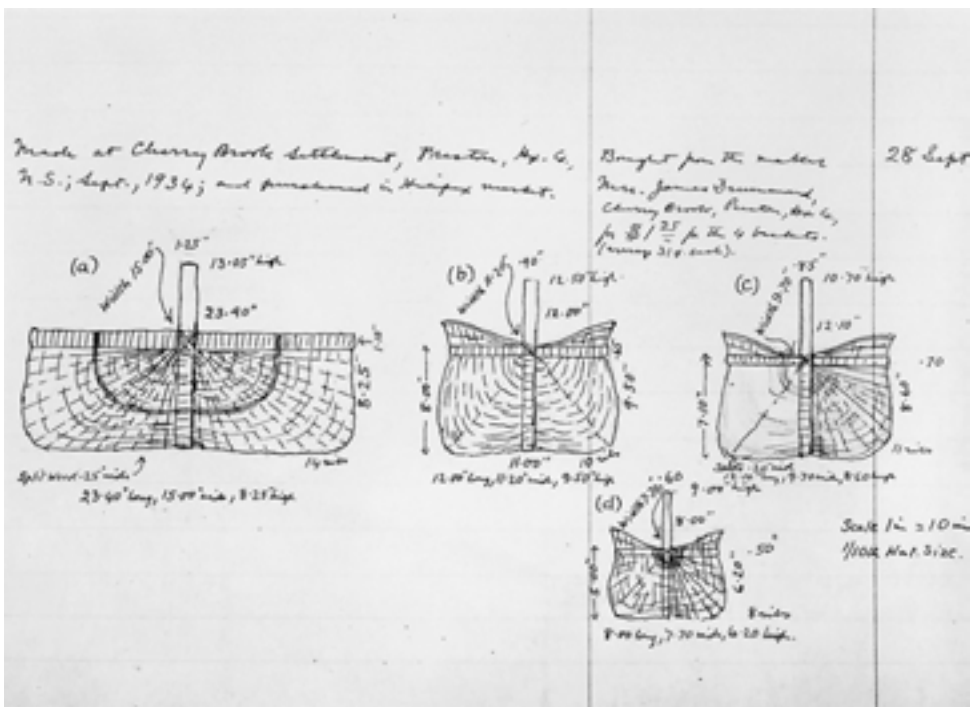 Made at Cherry Brook Settlement, Preston, Hx. Co.
N.S.; Sept., 1934; and purchased in Halifax market.
Bought from the maker
Mrs. James Drummond,
Cherry Brook, Preston, Hx. Co,
for $1 25 for the 4 baskets.
(average 31¢ each).
28 Sept
(a)
1.25"
13.05" high
Width 15.00"
23.40"
1.10"
8.25
14 ribs
Split wood .25" wide
23.40" long, 15.00" wide, 8.25" high
(b)
.90"
12.50" high
Width 11.20"
12.00"
8.00"
9.50"
11.00"
10 ribs
12.00" long, 11.20" wide, 9.50" high
(c)
.85"
10.70" high
Width 9.70"
12.10"
.70
7.10"
8.60"
11 ribs
long, 9.70 wide, 8.60 high
(d)
.60
9.00" high
Width 7.70
8.00"
.50"
5.00"
6.20"
8 ribs
8.00 long, 7.70 wide, 6.20 high.
Scale 1 in = 10 in
1/10th Nat. Size.